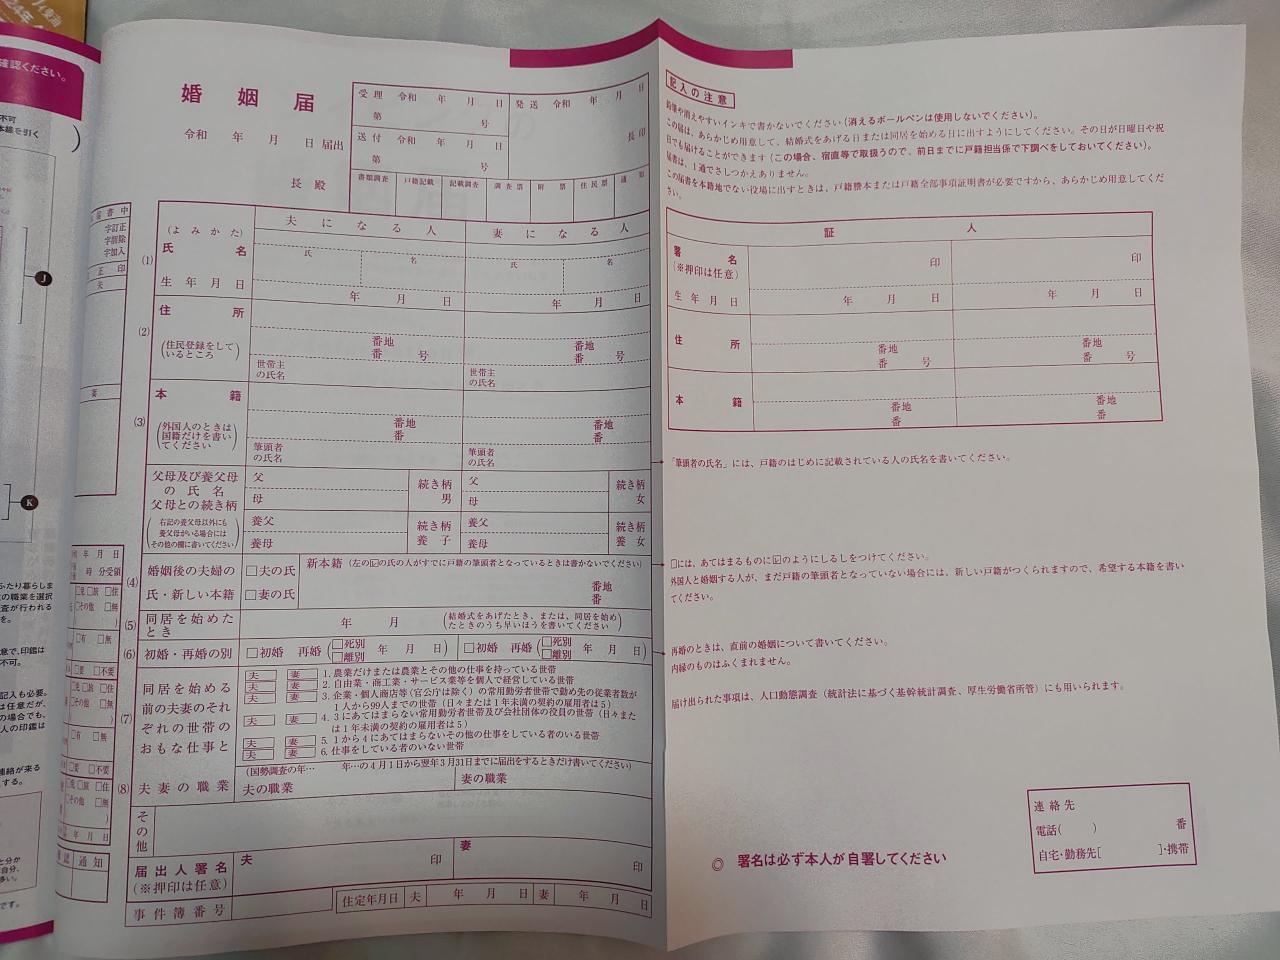 確認ください。
婚姻届
令和 年 月 日 届出
長 殿
受理 令和 年 月 日
第 号
送付 令和 年 月 日
第 号
発送 令和 年 月 日
長印
書類調査 戸籍記載 記載調査 調査票 附票 住民票 通知
(よみかた)
夫になる人
妻になる人
(1) 氏名
氏 名
氏 名
生年月日
年 月 日
年 月 日
(2) 住所
(住民登録をして
いるところ)
番地
番 号
番地
番 号
世帯主
の氏名
世帯主
の氏名
(3) 本籍
(外国人のときは
国籍だけを書い
てください)
番地
番
番地
番
筆頭者
の氏名
筆頭者
の氏名
父母及び養父母
の氏名
父母との続き柄
(右記の養父母以外にも
養父母がいる場合には
その他の欄に書いてください)
父
母
続き柄
男
父
母
続き柄
女
養父
養母
続き柄
養子
養父
養母
続き柄
養女
(4) 婚姻後の夫婦の
氏・新しい本籍
□夫の氏
□妻の氏
新本籍(左の☑の氏の人がすでに戸籍の筆頭者となっているときは書かないでください)
番地
番
(5) 同居を始めた
とき
年 月
(結婚式をあげたとき、または、同居を始め
たときのうち早いほうを書いてください)
(6) 初婚・再婚の別
□初婚 再婚(□死別 □離別 年 月 日)
□初婚 再婚(□死別 □離別 年 月 日)
(7) 同居を始める
前の夫妻のそれ
ぞれの世帯の
おもな仕事と
夫 妻 1. 農業だけまたは農業とその他の仕事を持っている世帯
夫 妻 2. 自由業・商工業・サービス業等を個人で経営している世帯
夫 妻 3. 企業・個人商店等(官公庁は除く)の常用勤労者世帯で勤め先の従業者数が
1人から99人までの世帯(日々または1年未満の契約の雇用者は5)
夫 妻 4. 3にあてはまらない常用勤労者世帯及び会社団体の役員の世帯(日々また
は1年未満の契約の雇用者は5)
夫 妻 5. 1から4にあてはまらないその他の仕事をしている者のいる世帯
夫 妻 6. 仕事をしている者のいない世帯
(8) 夫妻の職業
(国勢調査の年… 年…の4月1日から翌年3月31日までに届出をするときだけ書いてください)
夫の職業
妻の職業
その他
届出人署名
(※押印は任意)
夫 印
妻 印
事件簿番号
住定年月日 夫 年 月 日 妻 年 月 日
記入の注意
鉛筆や消えやすいインキで書かないでください(消えるボールペンは使用しないでください)。
この届は、あらかじめ用意して、結婚式をあげる日または同居を始める日に出すようにしてください。その日が日曜日や祝
日でも届けることができます(この場合、宿直等で取扱うので、前日までに戸籍担当係で下調べをしておいてください)。
届書は、1通でさしつかえありません。
この届書を本籍地でない役場に出すときは、戸籍謄本または戸籍全部事項証明書が必要ですから、あらかじめ用意してくださ
い。
証人
署名
(※押印は任意)
印
印
生年月日
年 月 日
年 月 日
住所
番地
番 号
番地
番 号
本籍
番地
番
番地
番
「筆頭者の氏名」には、戸籍のはじめに記載されている人の氏名を書いてください。
□には、あてはまるものに☑のようにしるしをつけてください。
外国人と婚姻する人が、まだ戸籍の筆頭者となっていない場合には、新しい戸籍がつくられますので、希望する本籍を書い
てください。
再婚のときは、直前の婚姻について書いてください。
内縁のものはふくまれません。
届け出られた事項は、人口動態調査(統計法に基づく基幹統計調査、厚生労働省所管)にも用いられます。
◎ 署名は必ず本人が自署してください
連絡先
電話( ) 番
自宅・勤務先[ ]・携帯
J
K